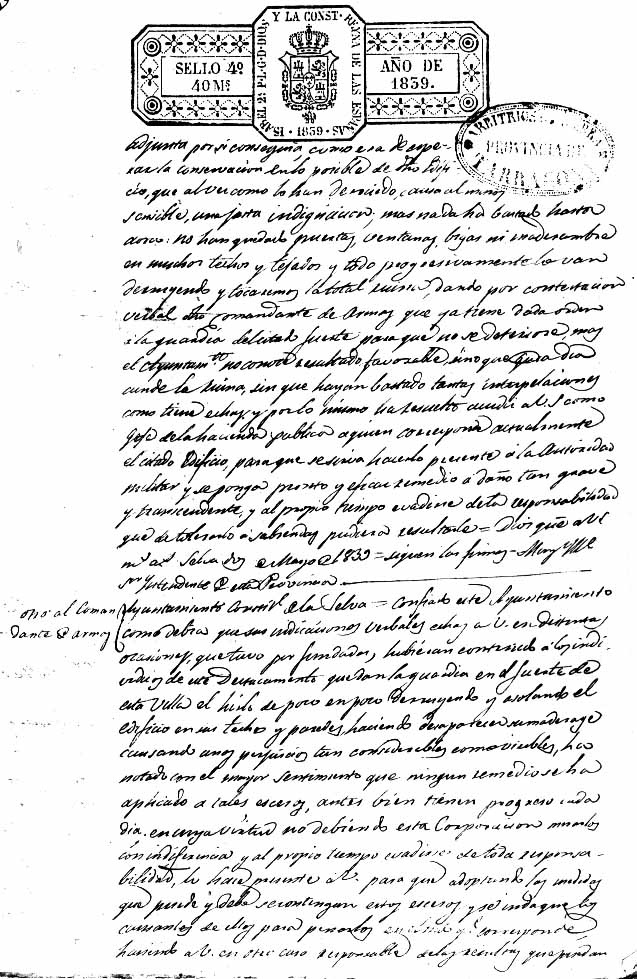 SELLO 4º
40 Ms
ISABEL 2ª P.L.G.D.DIOS Y LA CONST. REYNA DE LAS ESPAÑAS
1839
AÑO DE
1839.
ARBITRIOS
PROVINCIA DE
TARRAGONA
adjunta por si conseguia como era de espe-
rar la conservacion en lo posible de dho Edifi-
cio, que al ver como lo han destruido, causa al menos
sencible, una justa indignacion; mas nada ha bastado hasta
aora: no han quedado puertas, ventanas, bigas ni maderambre
en muchos techos y tejados y todo progresivamente lo van
derruyendo y tocaremos la total ruina, dando por contestacion
verbal dho comandante de Armas que ya tiene dada orden
á la guardia del citado fuerte para que no se deteriore, mas
el Ayuntamto no conoce resultado favorable, sino que cada dia
cunde la ruina, sin que hayan bastado tantas interpelaciones
como tiene echas y por lo mismo ha resuelto acudir á V.S. como
Gefe de la hacienda publica a quien corresponde actualmente
el citado Edificio, para que se sirva hacerlo presente á la Autoridad
militar y se ponga pronto y eficaz remedio á daño tan grave
y transcendente, y al propio tiempo evadirse de la responsabilidad
que de tolerarlo á sabiendas pudiera resultarle = Dios gue á V.S.
ms as Selva dos de Mayo de 1839 = siguen las firmas =
Sor Yntendente de esta Provincia
otro al Coman
dante de armas
Ayuntamiento Constl de la Selva = Confiado este Ayuntamiento
como debia que sus indicaciones verbales echas á V. en distintas
ocasiones, que tuvo por fundadas, hubieran contenido á los indi-
viduos de ese Destacamento que dan la guardia en el fuerte de
esta Villa el hirlo de poco en poco derruyendo y asolando el
edificio en sus techos y paredes, haciendo desaparecer su maderage
causando unos perjuicios tan considerables como visibles, ha
notado con el mayor sentimiento que ningun remedio se ha
aplicado a tales escesos, antes bien tienen progreso cada
dia. en cuya virtud no debiendo esta Corporacion mirarlos
con indiferencia y al propio tiempo evadirse de toda responsa-
bilidad, lo hace presente á V. para que adoptando las medidas
que puede y debe se contengan estos escesos y se indaguen los
causantes de ellos para penarlos corresponde
haciendo á V. en otro caso responsable de las resultas que puedan